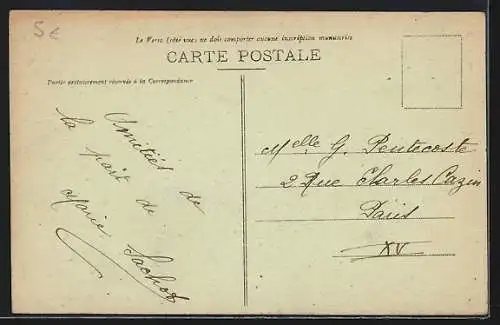 5€
Le Verso (côté vue) ne doit comporter aucune inscription manuscrite
CARTE POSTALE
Partie gratuitement réservée à la Correspondance
Amitiés de
la part de
Marie Sachot
Melle G. Pentecoste
2 Rue Charles Cazin
Paris
XV